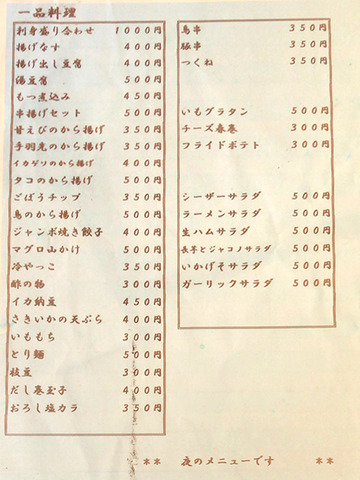 一品料理
刺身盛り合わせ 1000円
揚げなす 400円
揚げ出し豆腐 400円
湯豆腐 500円
もつ煮込み 450円
串揚げセット 500円
甘えびのから揚げ 350円
手羽先のから揚げ 350円
イカゲソのから揚げ 400円
タコのから揚げ 500円
ごぼうチップ 350円
鳥のから揚げ 500円
ジャンボ焼き餃子 400円
マグロ山かけ 500円
冷やっこ 350円
酢の物 300円
イカ納豆 450円
さきいかの天ぷら 400円
いももち 300円
とり麺 500円
枝豆 300円
だし巻玉子 400円
おろし塩カラ 350円
鳥串 350円
豚串 350円
つくね 350円
いもグラタン 500円
チーズ春巻 300円
フライドポテト 300円
シーザーサラダ 500円
ラーメンサラダ 500円
生ハムサラダ 500円
長芋とジャコノサラダ 500円
いかげそサラダ 500円
ガーリックサラダ 500円
** 夜のメニューです **